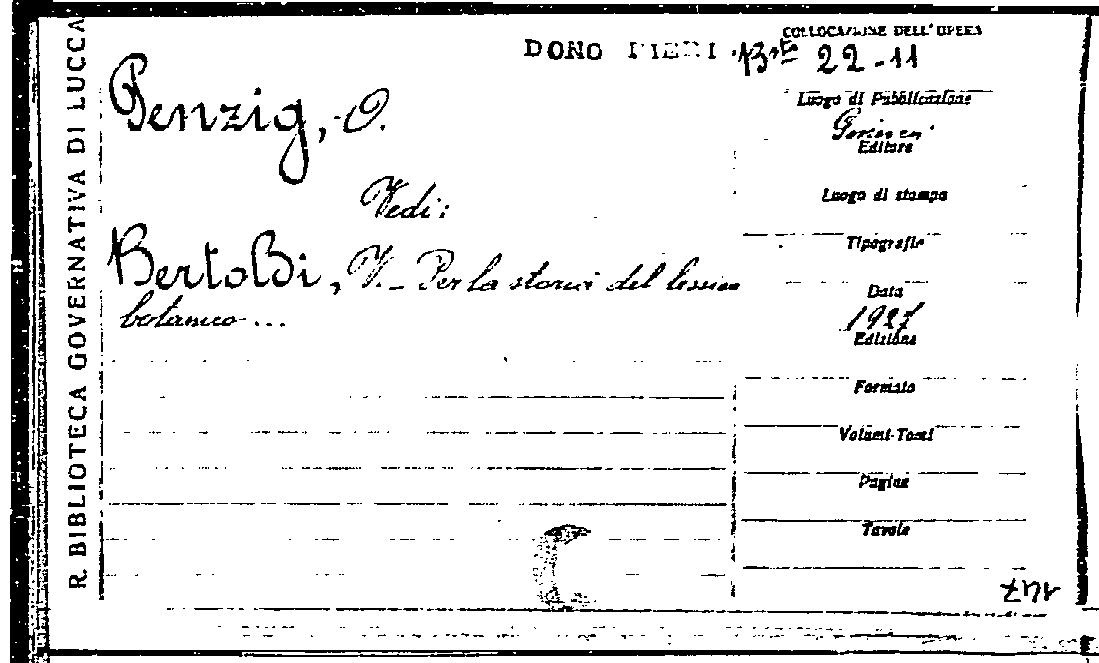 R. BIBLIOTECA GOVERNATIVA DI LUCCA
DONO PIERI
COLLOCAZIONE DELL'OPERA
22-11
Penzig, O.
Vedi:
Bertoldi, V. - Per la storia del lessico
botanico ...
Luogo di Pubblicazione
Editore
Luogo di stampa
Tipografie
Data
1927
Edizione
Formato
Volumi-Tomi
Pagine
Tavole